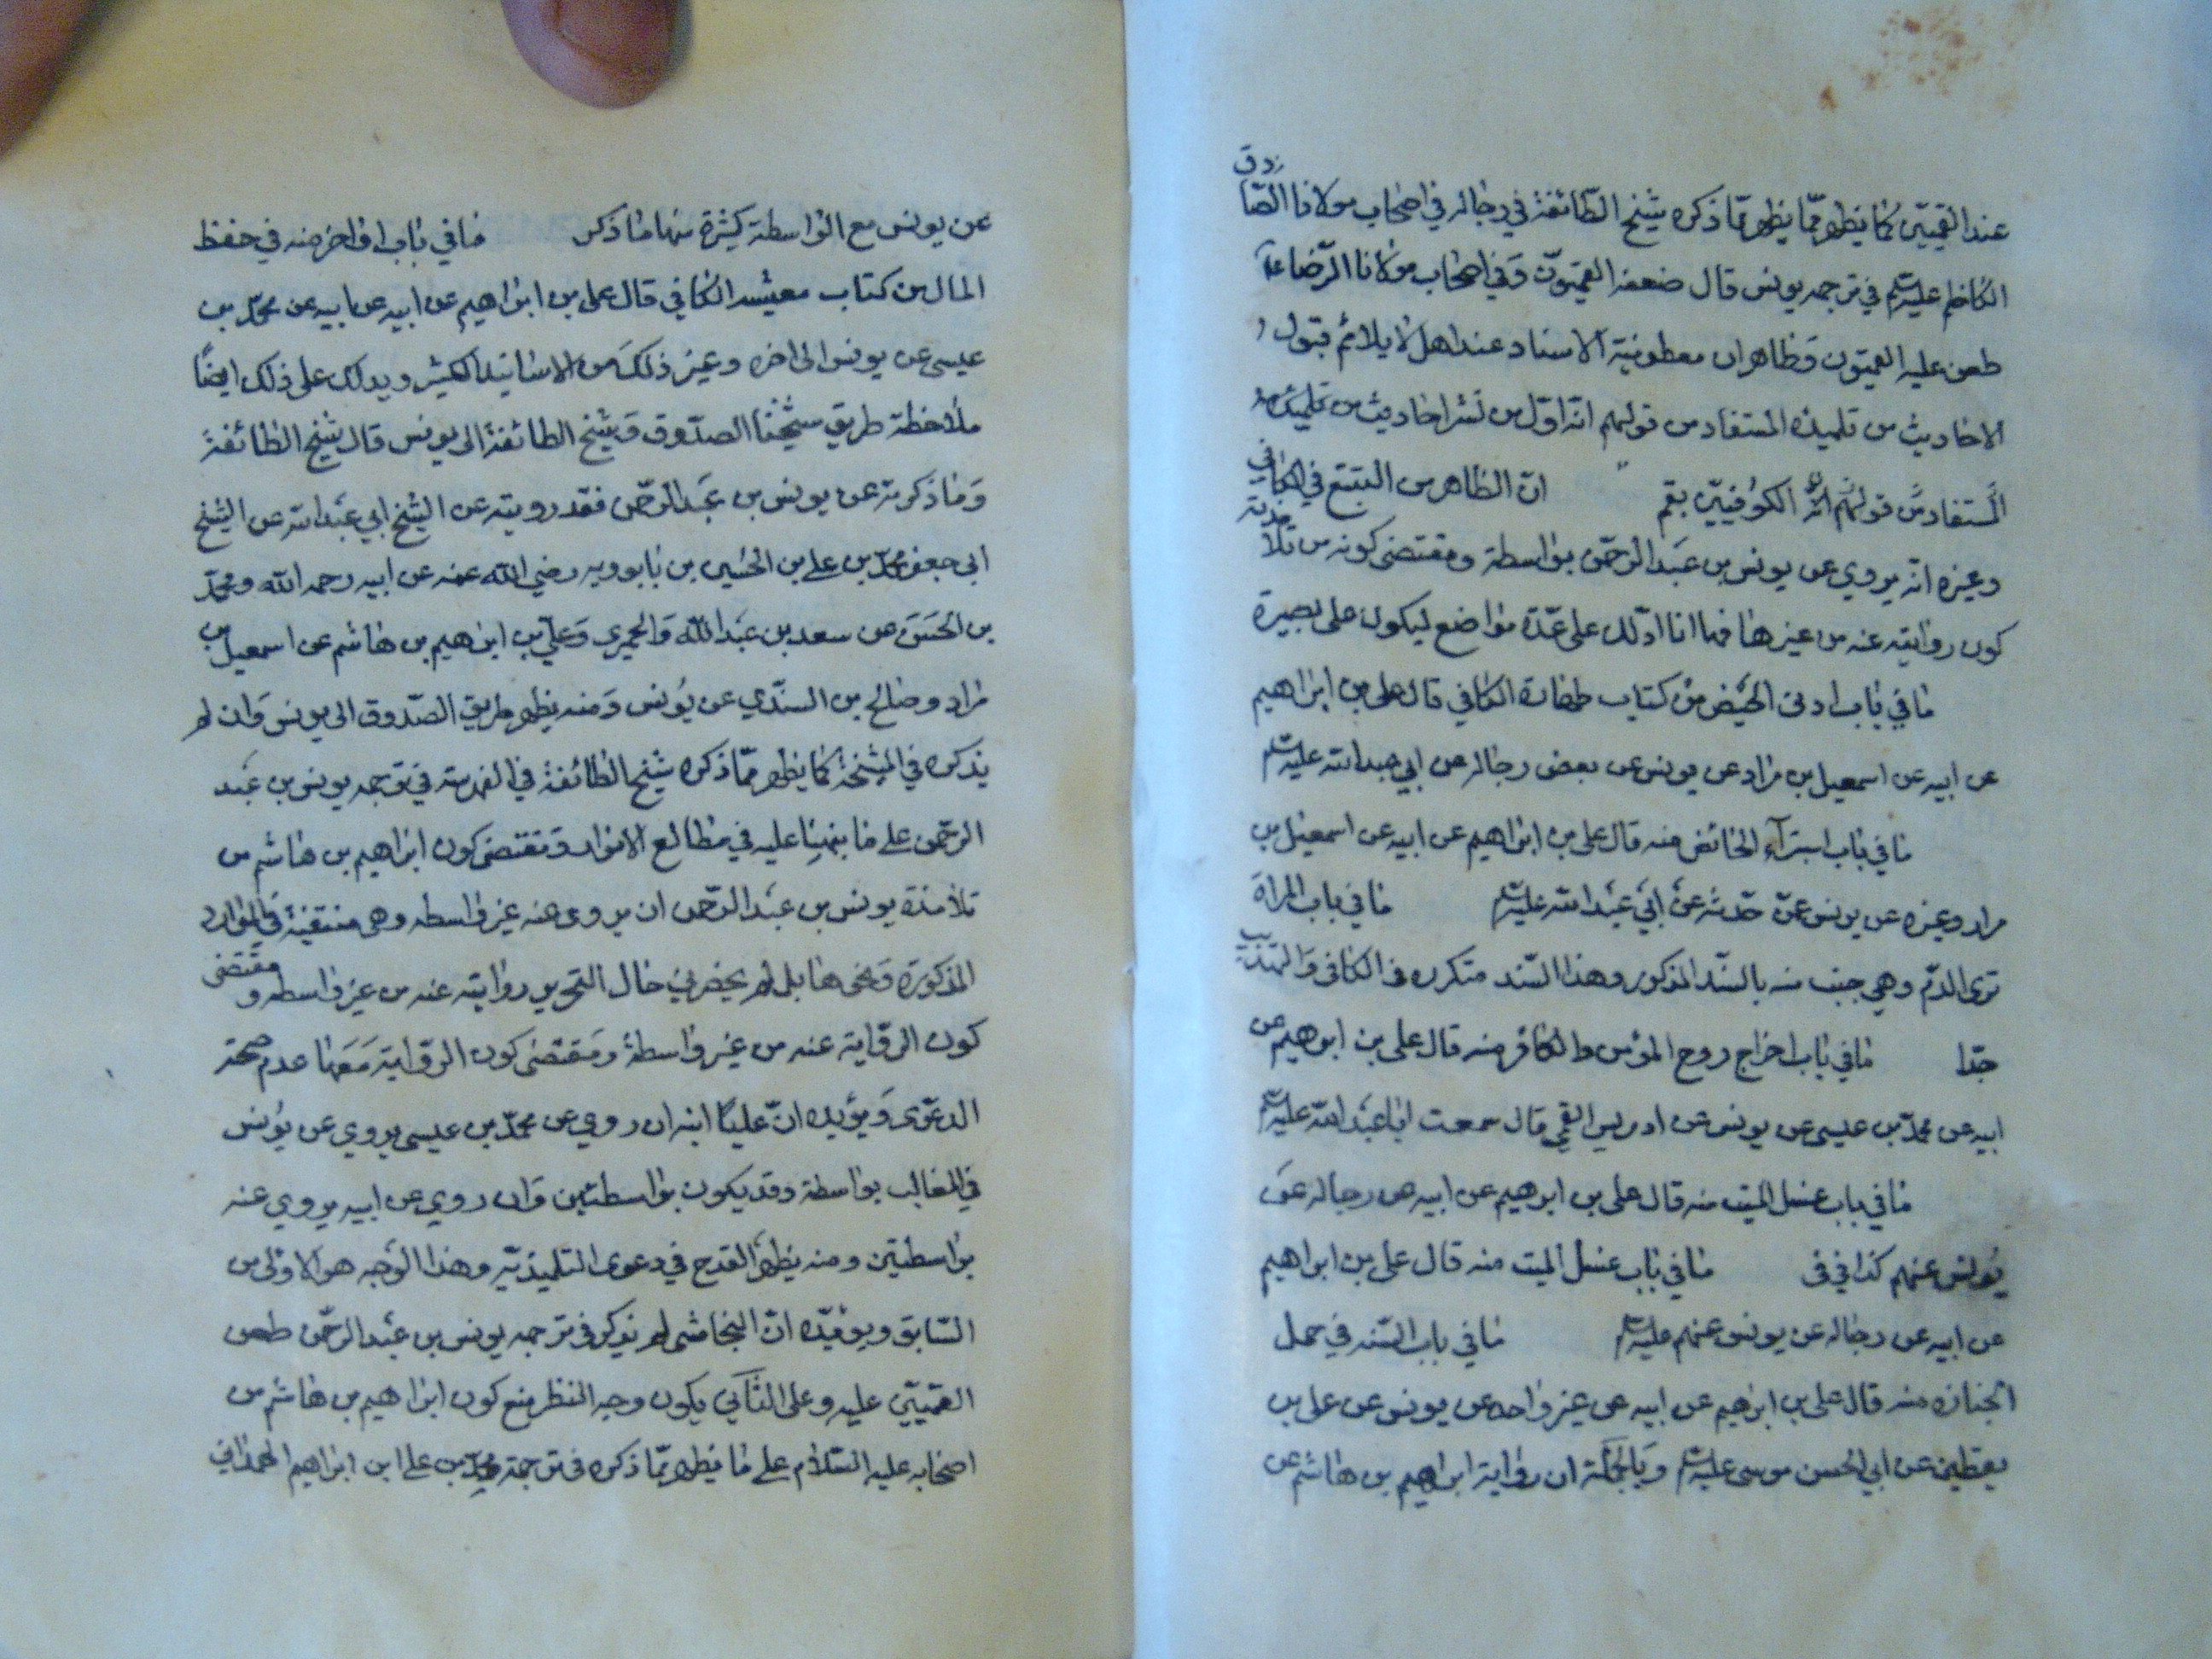 عند القميّين كما يظهر ممّا يظهر ممّا ذكره شيخ الطّائفة في رجاله في اصحاب مولانا الصّادق
الكاظم عليه السلم في ترجمه يونس قال ضعفه القميّون و في اصحاب مولانا الرّضا ع
طعن عليه القميّون و ظاهر ان مطعونية الاسناد عند اهل لا يلائم قبول
الاحاديث من تلميذه المستفاد من قولهم انّه اوّل من نشر احاديث من تلميذه
المستفاد من قولهم انّه الكوفيّين بقم ان الظاهر من التتبّع في الكافي
و غيره انّه يروي عن يونس بن عبد الرحمن بواسطة و مقتضى كونه من تلامذته
كون روايته عنه من غيرها فها انا ادلّك على عدّة مواضع ليكون على بصيرة
ما في باب ادنى الحيض من كتاب طهارة الكافي قال علي بن ابراهيم
عن ابيه عن اسمعيل بن مرار عن يونس عن بعض رجاله عن ابي عبد الله عليه السلم
ما في باب استبرآء الحائض منه قال علي بن ابراهيم عن ابيه عن اسمعيل بن
مرار و غيره عن يونس عمّن حدّثه عن ابي عبد الله عليه السلم ما في باب المراة
ترى الدم و هي جنب منه بالسّند المذكور و هذا السّند متكرره في الكافي و التهذيب
جدّا ما في باب اخراج روح المؤمن و الكافر منه قال علي بن ابرهيم عن
ابيه عن محمّد بن عيسى عن يونس عن ادريس القمي قال سمعت ابا عبد الله عليه السلم
ما في باب غسل الميّت منه قال علي بن ابرهيم عن ابيه عن رجاله عن
يونس عنهم كذا في في ما في باب غسل الميت منه قال علي بن ابراهيم
عن ابيه عن رجاله عن يونس عنهم عليه السلم ما في باب السّنه في حمل
الجنازه منه قال علي بن ابرهيم عن ابيه عن غير واحد عن يونس عن علي بن
يقطين عن ابي الحسن موسى عليه السلم و بالجملة ان رواية ابراهيم بن هاشم عن
عن يونس مع الواسطة كثيرة منها ما ذكر ما في باب اخر منه في حفظ
المال من كتاب معيشه الكافي قال علي بن ابراهيم عن ابيه عن ابيه عن محمّد بن
عيسى عن يونس الى اخره و غير ذلك من الاسانيد الكثير و يدلك على ذلك ايضًا
ملاحظة طريق شيخنا الصدّوق و شيخ الطائفة الى يونس قال شيخ الطائفة
و ما ذكرته عن يونس بن عبد الرحمن فقد رويته عن الشيخ ابي عبد الله عن الشيخ
ابي جعفر محمّد بن علي بن الحسين بن بابويه رضي الله عنه عن ابيه رحمه الله و محمّد
بن الحسن عن سعد بن عبد الله و الحميري و علي بن ابرهيم بن هاشم عن اسمعيل بن
مرار و صالح بن السندّي عن يونس و منه يظهر طريق الصّدوق الى يونس و ان لم
يذكره في المشيخة كما يظهر ممّا ذكره شيخ الطائفة في الفهرسته في ترجمه يونس بن عبد
الرحمن على ما بنهنا عليه في مطالع الانوار و مقتضى كون ابراهيم بن هاشم من
تلامذة يونس بن عبد الرحمن ان يروى عنه غير واسطه و هي منتفية في الموارد
المذكورة و نحوها بل لم يحضرني حال التحرير روايته عنه من غير واسطه و مقتضى
كون الرواية عنه من غير واسطة و مقتضى كون الرواية معها عدم صحة
الدعوى و يؤيده انّ عليًا ابنه ان روى عن محمّد بن عيسى يروي عن يونس
في الغالب بواسطة و قد يكون بواسطتين و ان روي عن ابيه يروي عنه
بواسطتين و منه يظهر القدح في دعوى التلميذيّه و هذا الوجه هو الاولى من
السّابق و يؤيّده انّ النجاشى لم يذكر في ترجمه يونس بن عبد الرحمن طعن
القميّين عليه و على الثاني يكون وجه النظر منع كون ابراهيم بن هاشم من
اصحابه عليه السّلام على ما يظهر ممّا ذكره في ترجمة محمّد بن علي ابن ابراهيم الهمداني